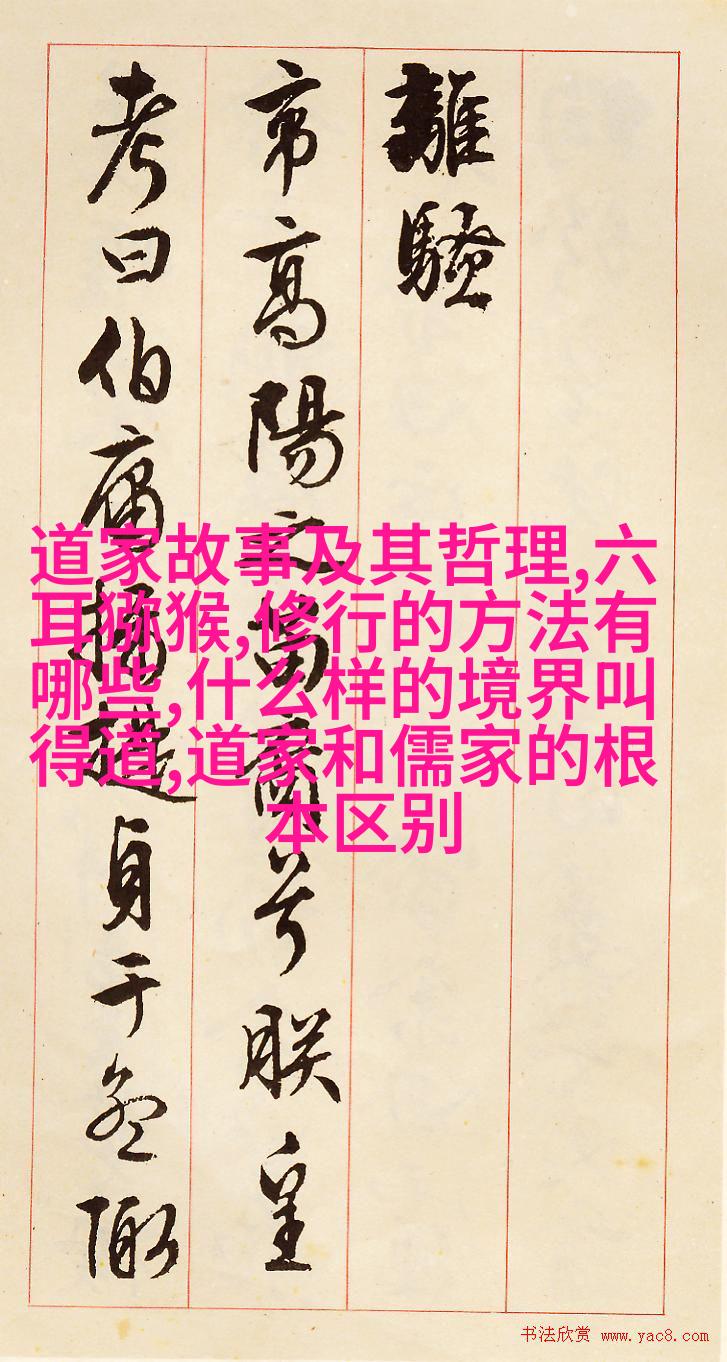 離騷
帝高陽之苗裔兮朕皇
考曰伯庸攝提貞于孟陬
道家故事及其哲理,六
耳猕猴,修行的方法有
哪些,什么样的境界叫
得道,道家和儒家的根
本区别
书法欣赏 www.yac8.com